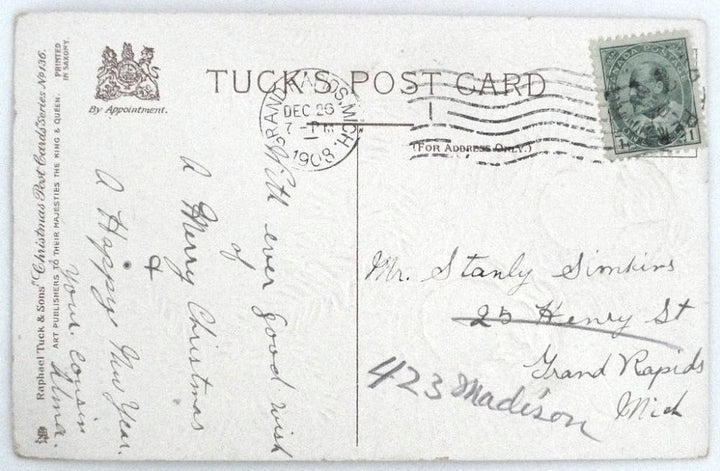 TUCK'S POST CARD
By Appointment.
(FOR ADDRESS ONLY.)
Raphael Tuck & Sons' "Christmas Post Cards" Series No 136.
ART PUBLISHERS TO THEIR MAJESTIES THE KING & QUEEN.
PRINTED
IN SAXONY.
GRAND RAPIDS, MICH.
DEC 26
7-PM
1908
CANADA POSTAGE
1 1
With ever good wish
of
A Merry Christmas
&
A Happy New Year.
Your Cousin
Alma.
Mr. Stanly Simkins
25 Henry St
Grand Rapids
Mich
423 Madison